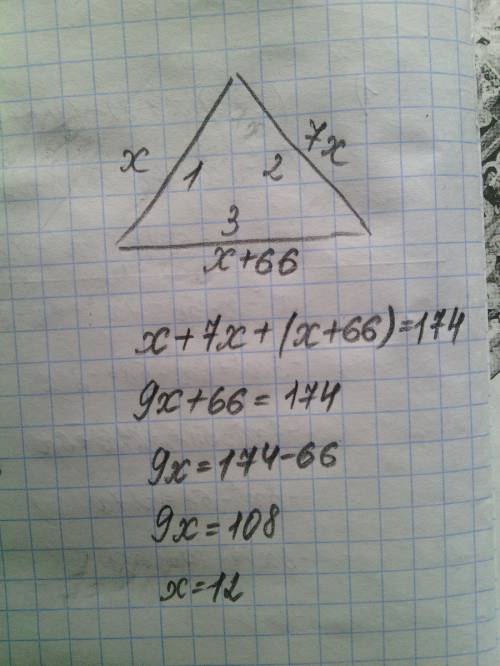 x 1 2 7x
3
x+66
x+7x+(x+66)=174
9x+66=174
9x=174-66
9x=108
x=12